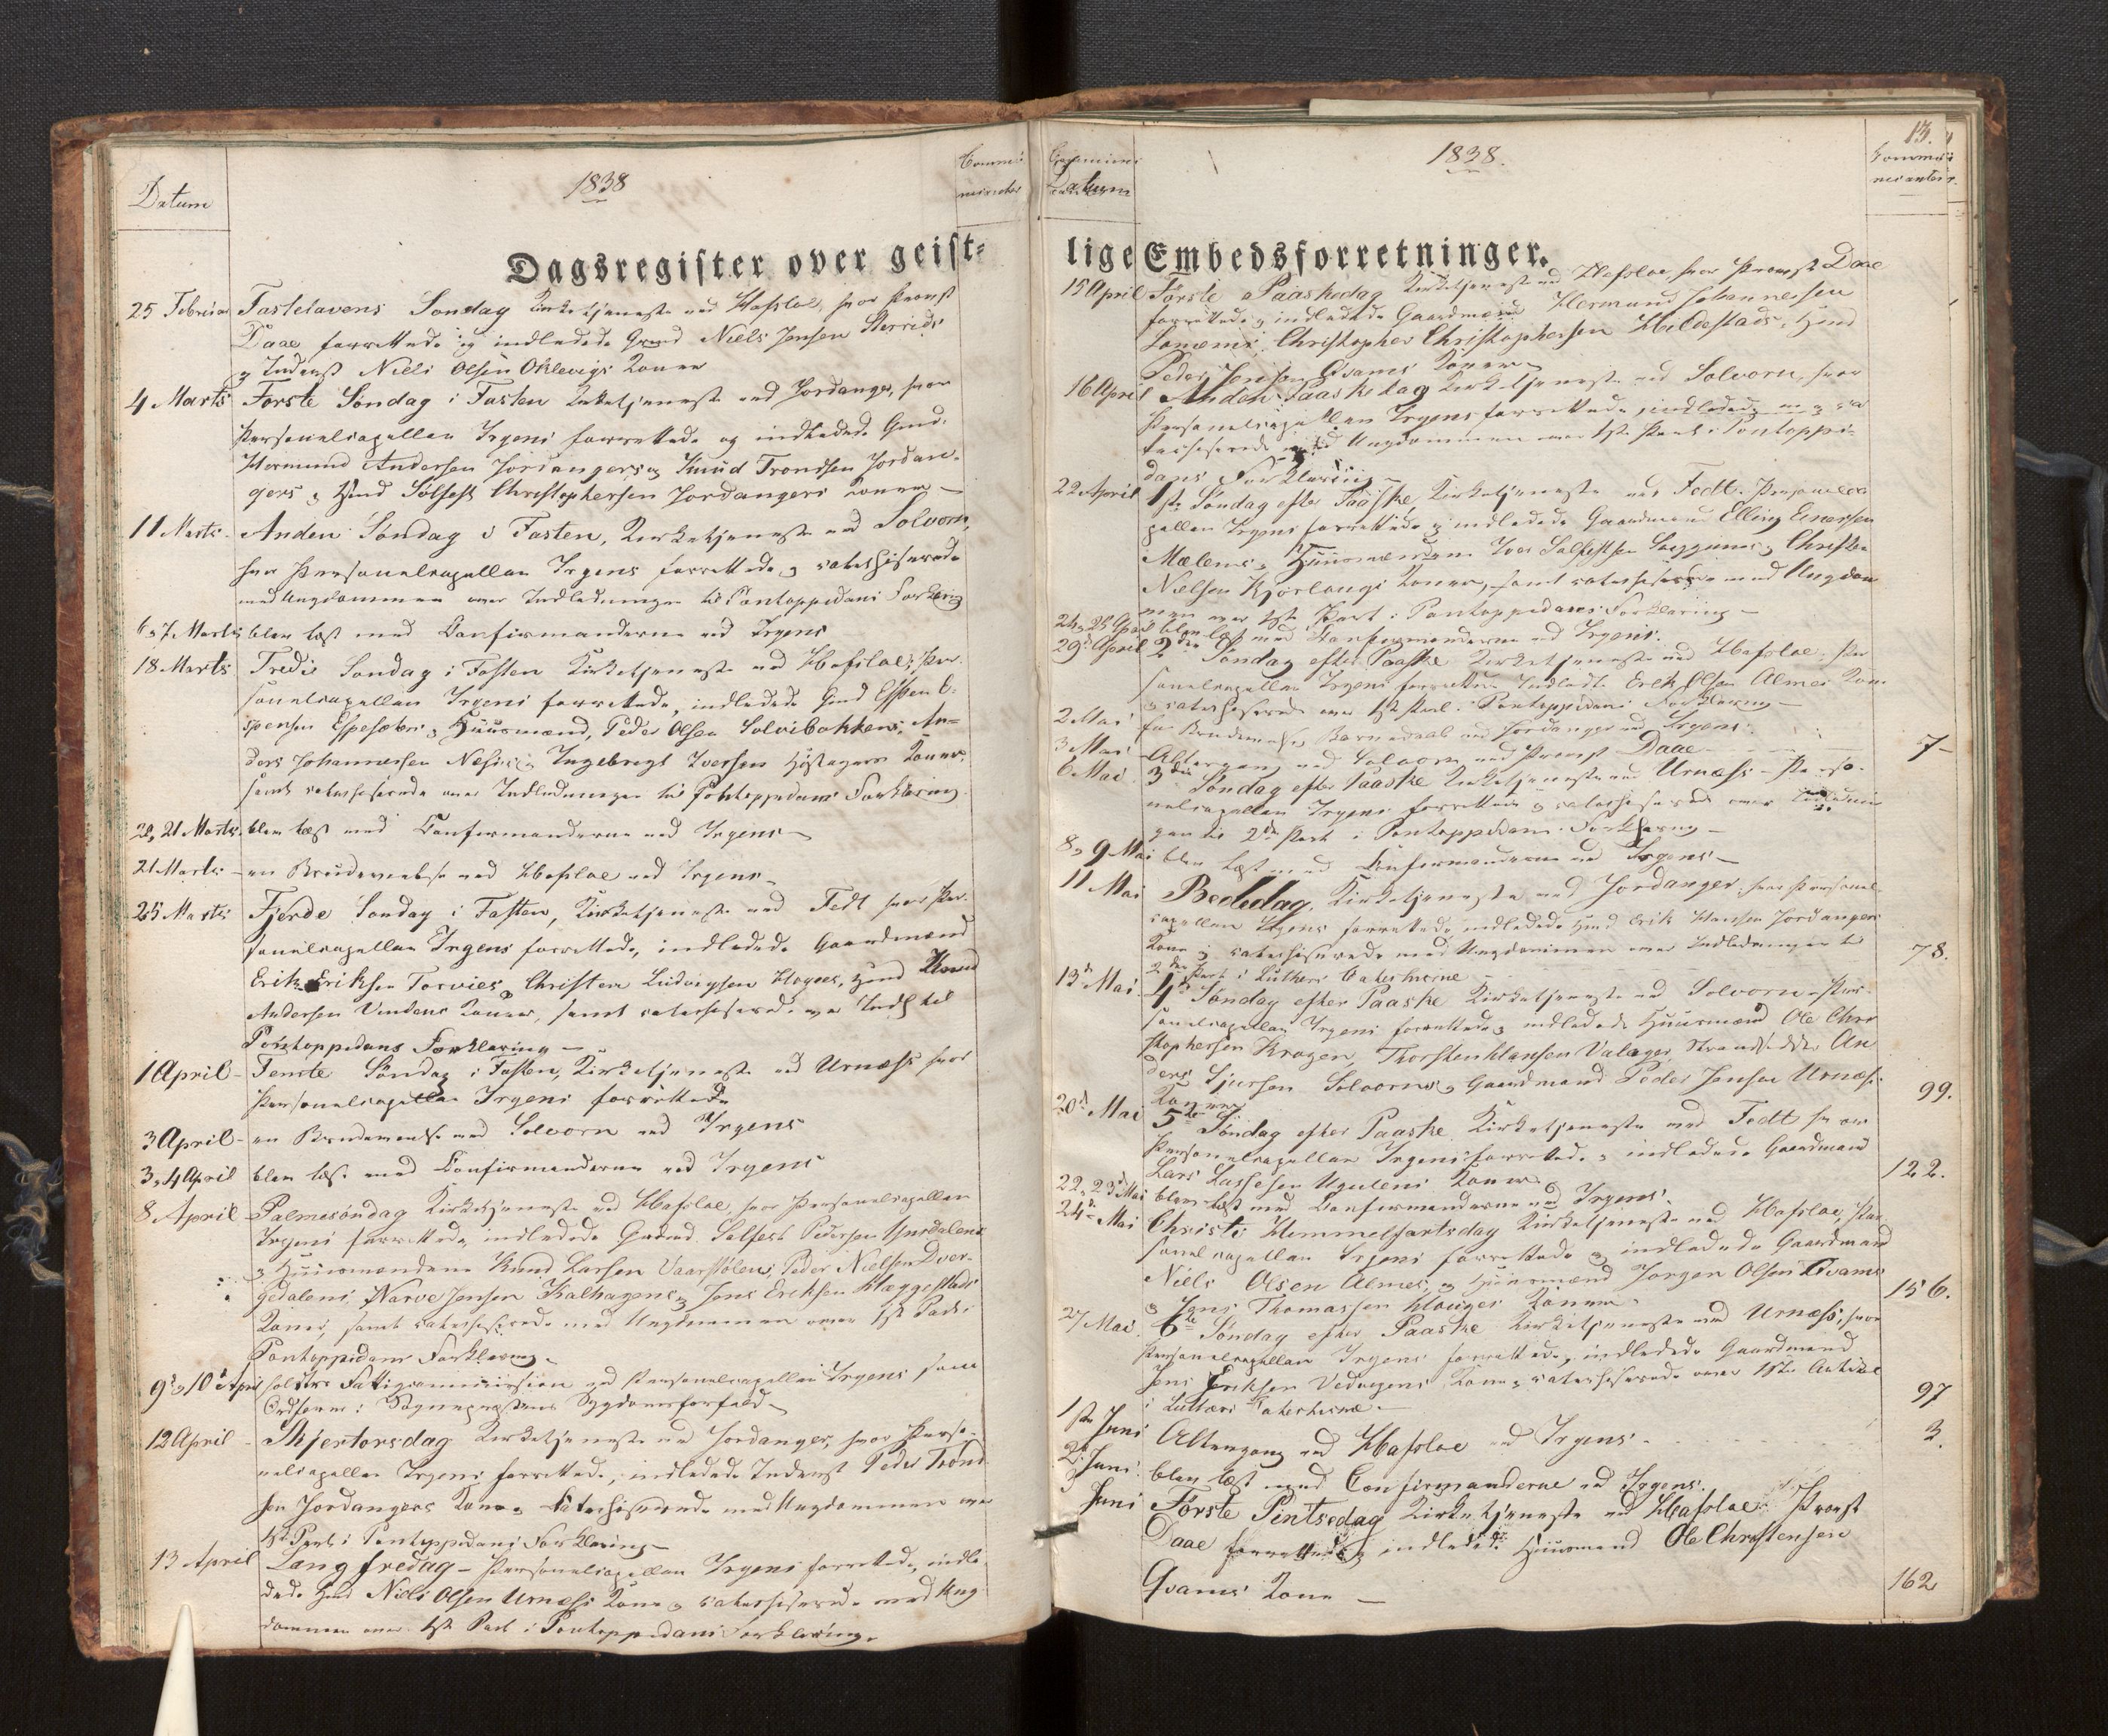 Datum
1838
Communicanter
Dagsregister over geist-
25 Februar Fastelavens Søndag Kirketjeneste ved Hafsloe, hvor Provst
Daae forrettede og indledede Gmd Niels Jensen
og Inderst Niels Olsen Oklevigs Koner
4 Marts Første Søndag i Fasten Kirketjeneste ved Jordanger, hvor
Personelcapellan Irgens forrettede og indledede Gmd.
Hermund Andersen Jordangers og Knud Trondsen Jordan-
gers og Hmd Solfest Christophersen Jordangers Koner –
11 Marts – Anden Søndag i Fasten, Kirketjeneste ved Solvorn,
hvor Personelcapellan Irgens forrettede og catechiserede
med Ungdommen over Indledningen til Pontoppidans Forklaring
6 og 7 Marts blev læst med Confirmanderne ved Irgens
18 Marts Tredie Søndag i Fasten Kirketjeneste ved Hafsloe; Per-
sonelcapellan Irgens forrettede, indledede Gmd Espen E-
spensen Espesæters og Huusmænd, Peder Olsen Solvibakkens, An-
ders Johannesen Næss og Ingebrigt Iversen Koner,
samt catechiserede over Indledningen til Pontoppidans Forklaring
20, 21 Marts blev læst med Confirmanderne ved Irgens –
21 Marts – en Brudevielse ved Hafsloe ved Irgens –
25 Marts Fjerde Søndag i Fasten, Kirketjeneste ved Fedt hvor Per-
sonelcapellan Irgens forrettede, indledede Gaardmænd
Erik Eriksen Torvies, Christen Ludvigsen, Hmd Knud
Andersen Vindens Koner, samt catechiserede over Indl til
Pontoppidans Forklaring –
1 April – Femte Søndag i Fasten, Kirketjeneste ved Urnæss hvor
Personelcapellan Irgens forrettede
3 April – en Brudevielse ved Solvorn ved Irgens
3, 4 April blev læst med Confirmanderne ved Irgens
8 April – Palmesøndag Kirketjeneste ved Hafsloe, hvor Personelcapellan
Irgens forrettede, indledede Gmd Solfest Pedersen
og Huusmændene Knud Larsen Vaarstølens, Peder Nielsen Dver-
gedalens, Narve Jensen Kalhagens og Jens Eriksen Hæggestads
Koner, samt catechiserede med Ungdommen over 1ste Part i
Pontoppidans Forklaring –
9de og 10de April holdtes Fatigcommission ved Personelcapellan Irgens som
Ordfører i Sognepræstens Sygdomsforfald –
12 April – Skjertorsdag Kirketjeneste ved Jordanger, hvor Perso-
nelcapellan Irgens forrettede, indledede Inderst Peder Trond-
sen Jordangers Kone og Catechiserede med Ungdommen over
1ste Part i Pontoppidans Forklaring –
13 April Langfredag – Personelcapellan Irgens forrettede, indle-
dede Hmd Niels Olsen Urnæss Kone og catechiserede med Ung-
dommen over 1ste Part i Pontoppidans Forklaring.
Datum
1838.
13.
Communicanter
lige Embedsforretninger.
15 April Første Paaskedag Kirketjeneste ved Hafsloe hvor Provst Daae
forrettede og indledede Gaardmænd Hermund Johannesen
Christopher Christophersen Hildestads, Hmd
Peder Jensen Qvams Koner
16 April Anden Paaskedag Kirketjeneste ved Solvorn, hvor
Personelcapellan Irgens forrettede, indledede og ca-
techiserede med Ungdommen over 1ste Part i Pontoppi-
dans Forklaring –
22 April 1ste Søndag efter Paaske, Kirketjeneste ved Fedt. Personelca-
pellan Irgens forrettede og indledede Gaardmænd Elling Einersen
Mælems, Huusmændene Iver Solfestsen og Christen
Nielsen Kjørlaugs Koner, samt catechiserede med Ungdom-
men over 1ste Part i Pontoppidans Forklaring –
24, 25 April blev læst med Confirmanderne ved Irgens.
29de April 2den Søndag efter Paaske Kirketjeneste ved Hafsloe. Per-
sonelcapellan Irgens forrettede Indledte Erik Olsen Almes Kone
og catechiserede over 1ste Part i Pontoppidans Forklaring –
2 Mai Barnedaab ved Jordanger ved Irgens.
3 Mai Altergang ved Solvorn ved Provst Daae – 7 –
6 Mai 3die Søndag efter Paaske Kirketjeneste ved Urnæss – Perso-
nelcapellan Irgens forrettede og catechiserede over Indlednin-
gen til 2den Part i Pontoppidans Forklaring –
8 og 9 Mai blev læst med Confirmanderne ved Irgens –
11 Mai Bededag, Kirketjeneste ved Jordanger, hvor Personel-
capellan Irgens forrettede, indledede Hmd Erik Hansen Jordangers
Kone og catechiserede med Ungdommen over Indledningen til 78.
2den Part i Luthers Catechisme
13de Mai 4de Søndag efter Paaske Kirketjeneste ved Solvorn – Per-
sonelcapellan Irgens forrettede og indledede Huusmænd Ole Chri-
stophersen Kragen, Thorsten Hansen Valager, Strandsidder An-
ders Sjursen Solvorns og Gaardmand Peder Jensen Urnæss 99.
Koner
20de Mai 5te Søndag efter Paaske Kirketjeneste ved Fedt hvor
Personelcapellan Irgens forrettede og indledede Gaardmand
Lars Lassesen Ugulens Kone 122.
22, 23de Mai blev læst med Confirmanderne ved Irgens.
24de Mai Christi Himmelfartsdag Kirketjeneste ved Hafsloe, Per-
sonelcapellan Irgens forrettede og indledede Gaardmænd
Niels Olsen Almes, og Huusmænd Jørgen Olsen Qvams
og Jens Thomassen Hauges Koner 156.
27 Mai. 6te Søndag efter Paaske Kirketjeneste ved Urnæss, hvor
Personelcapellan Irgens forrettede, indledede Gaardmand
Jens Eriksen Kone og catechiserede over 1ste Artikel
i Luthers Catechisme – 97
1ste Juni Altergang ved Hafsloe ved Irgens – 3.
2. Juni. blev læst med Confirmanderne ved Irgens.
3 Juni Første Pintsedag Kirketjeneste ved Hafsloe: Provst
Daae forrettede og indledede Huusmand Ole Christensen
Qvams Kone – 162